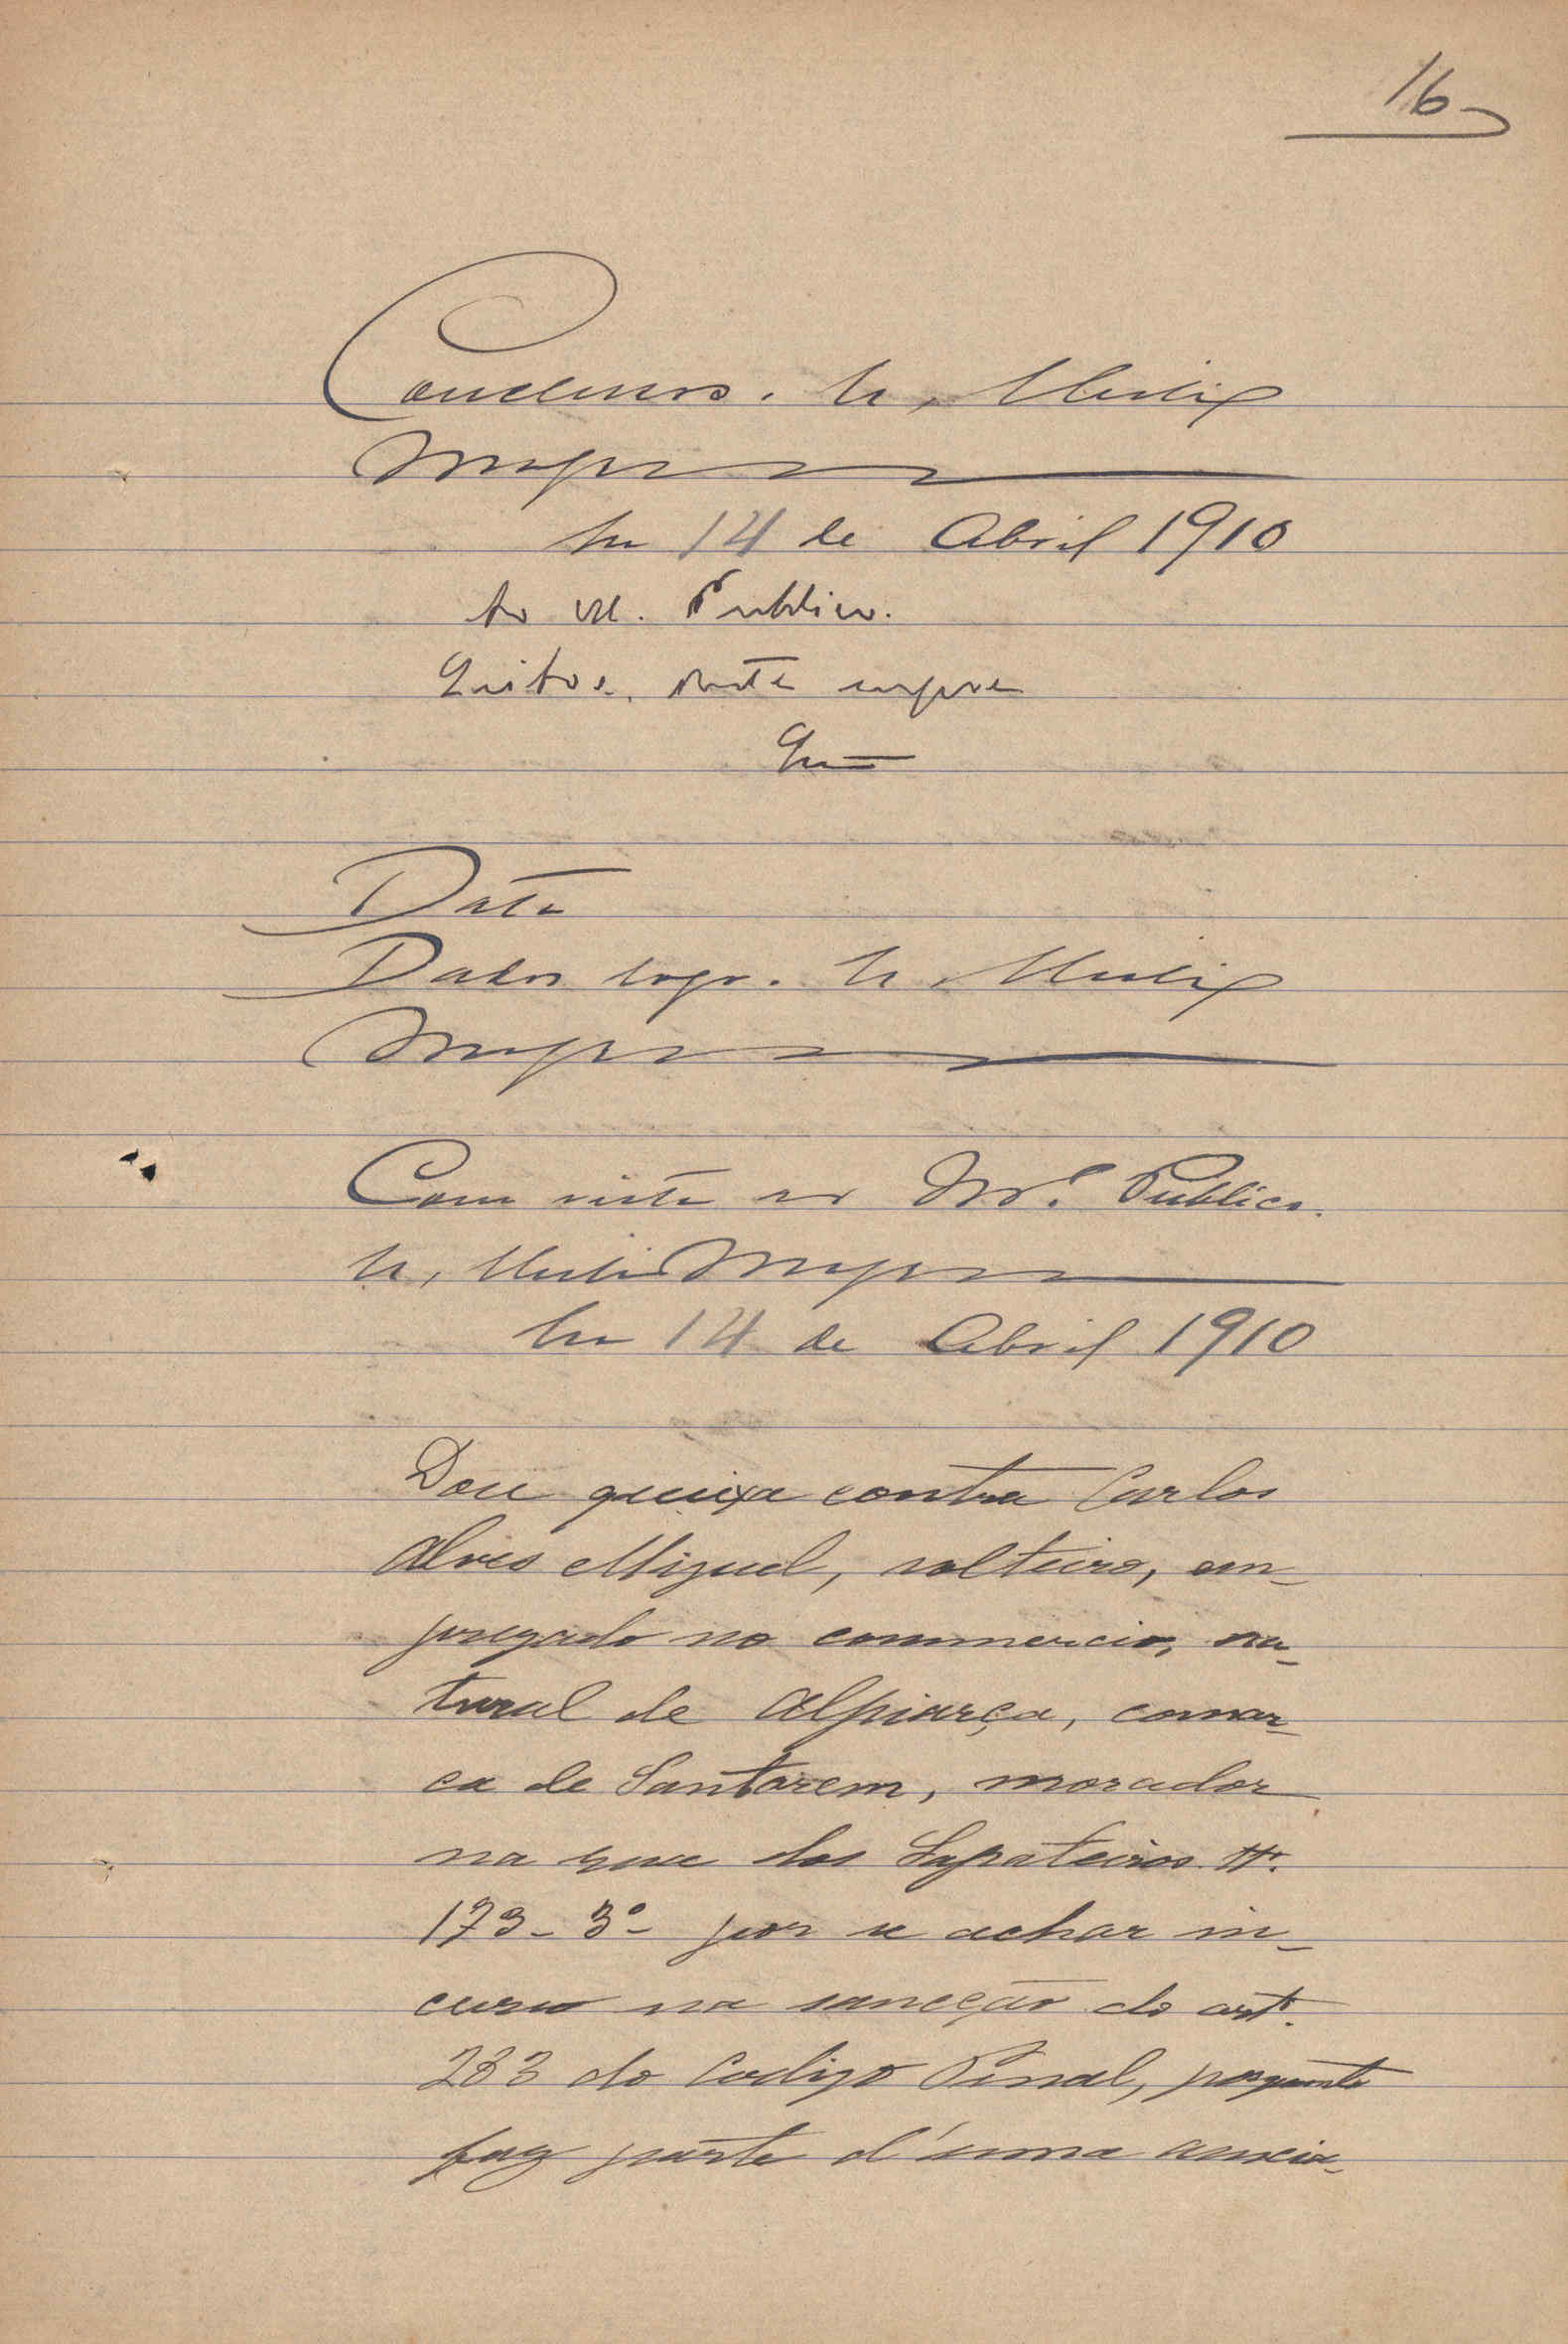 16
Conclusos. E,
Em 14 de Abril 1910
Ao M. Publico.
Data
Dados logo. E,
Com vista ao M.º Publico.
E,
Em 14 de Abril 1910
Dou queixa contra Carlos
Alves Miguel, solteiro, em-
pregado no commercio, na-
tural de Alpiarça, comar-
ca de Santarem, morador
na rua dos Sapateiros Nº.
173-3º- por se achar in-
curso na sancção do artº.
283 do Codigo Penal, porquanto
faz parte d'uma associa-